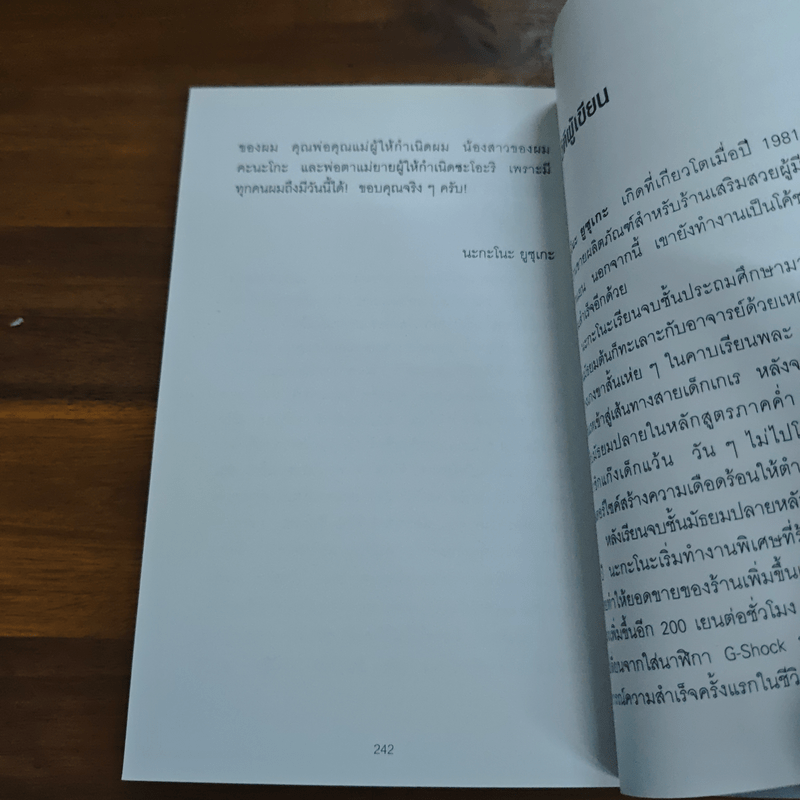 ของผม คุณพ่อคุณแม่ผู้ให้กำเนิดผม น้องสาวของผม
คะนะโกะ และพ่อตาแม่ยายผู้ให้กำเนิดซะโอะริ เพราะมี
ทุกคนผมถึงมีวันนี้ได้! ขอบคุณจริง ๆ ครับ!
นะกะโนะ ยูซุเกะ
242
ผู้เขียน
ยูซุเกะ เกิดที่เกียวโตเมื่อปี 1981
ขายผลิตภัณฑ์สำหรับร้านเสริมสวยผู้มี
นอกจากนี้ เขายังทำงานเป็นโค้ช
อีกด้วย
นะกะโนะเรียนจบชั้นประถมศึกษามา
มัธยมต้นก็ทะเลาะกับอาจารย์ด้วยเหตุ
กางเกงขาสั้นเห่ย ๆ ในคาบเรียนพละ
เข้าสู่เส้นทางสายเด็กเกเร หลังจ
มัธยมปลายในหลักสูตรภาคค่ำ
แก๊งเด็กแว้น วัน ๆ ไม่ไปโ
สร้างความเดือดร้อนให้ตำ
หลังเรียนจบชั้นมัธยมปลายหลั
นะกะโนะเริ่มทำงานพิเศษที่ร้
ทำให้ยอดขายของร้านเพิ่มขึ้น
เพิ่มขึ้นอีก 200 เยนต่อชั่วโมง
จากใส่นาฬิกา G-Shock
ความสำเร็จครั้งแรกในชีวิ